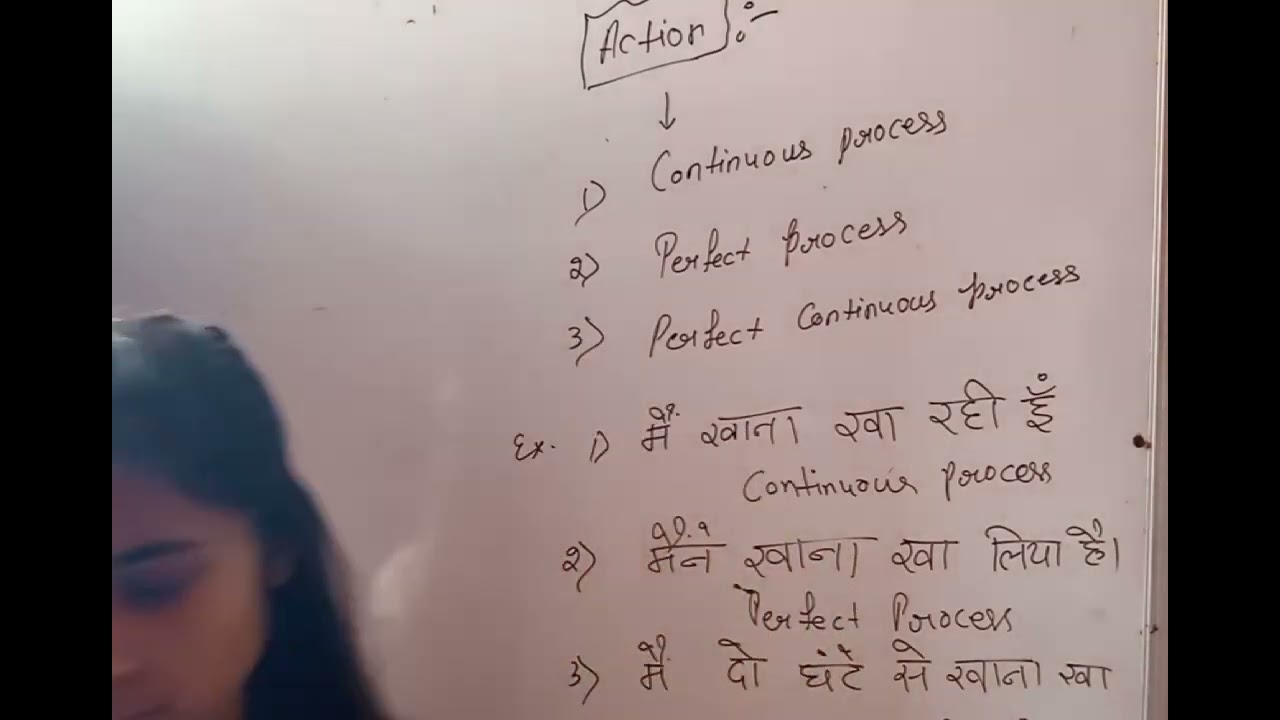 Action :-
↓
1) Continuous process
2) Perfect process
3) Perfect Continuous process
Ex. 1) मैं खाना खा रही हूँ
Continuous process
2) मैंने खाना खा लिया है।
Perfect Process
3) मैं दो घंटे से खाना खा